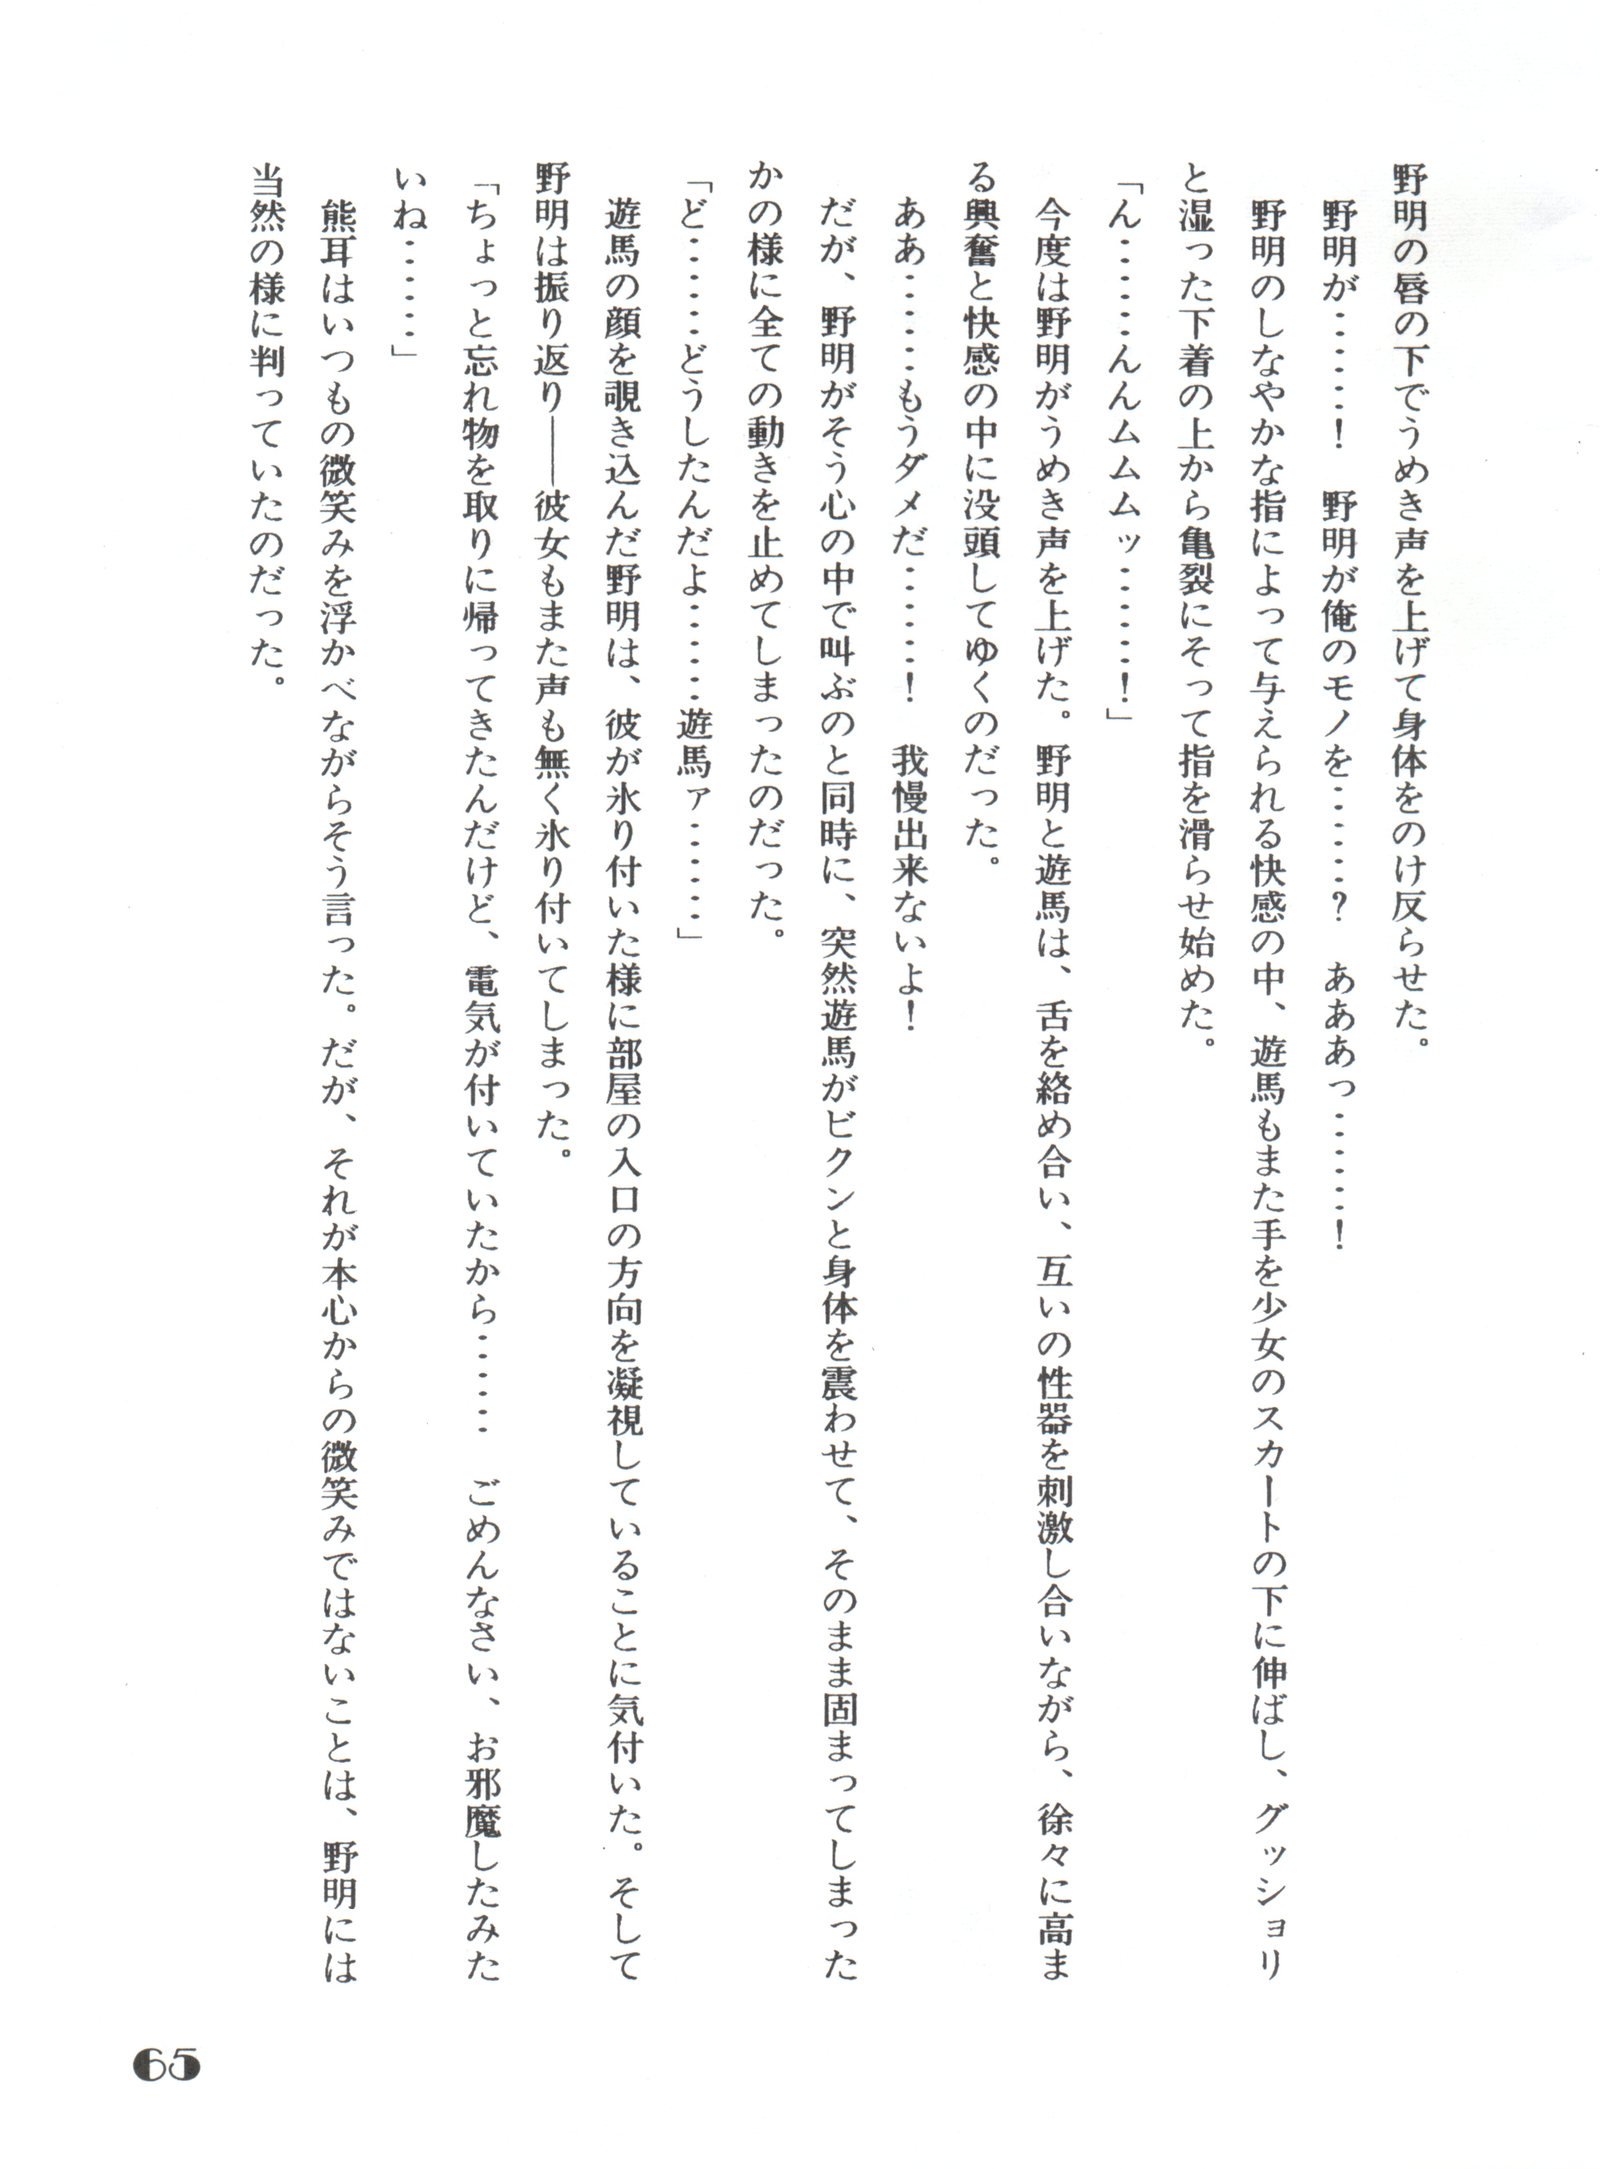 野明の唇の下でうめき声を上げて身体をのけ反らせた。
野明が……！　野明が俺のモノを……？　あああっ……！
野明のしなやかな指によって与えられる快感の中、遊馬もまた手を少女のスカートの下に伸ばし、グッショリ
と湿った下着の上から亀裂にそって指を滑らせ始めた。
「ん……んんムムムッ……！」
今度は野明がうめき声を上げた。野明と遊馬は、舌を絡め合い、互いの性器を刺激し合いながら、徐々に高ま
る興奮と快感の中に没頭してゆくのだった。
ああ……もうダメだ……！　我慢出来ないよ！
だが、野明がそう心の中で叫ぶのと同時に、突然遊馬がビクンと身体を震わせて、そのまま固まってしまった
かの様に全ての動きを止めてしまったのだった。
「ど……どうしたんだよ……遊馬ァ……」
遊馬の顔を覗き込んだ野明は、彼が氷り付いた様に部屋の入口の方向を凝視していることに気付いた。そして
野明は振り返り――彼女もまた声も無く氷り付いてしまった。
「ちょっと忘れ物を取りに帰ってきたんだけど、電気が付いていたから……　ごめんなさい、お邪魔したみた
いね……」
熊耳はいつもの微笑みを浮かべながらそう言った。だが、それが本心からの微笑みではないことは、野明には
当然の様に判っていたのだった。
65